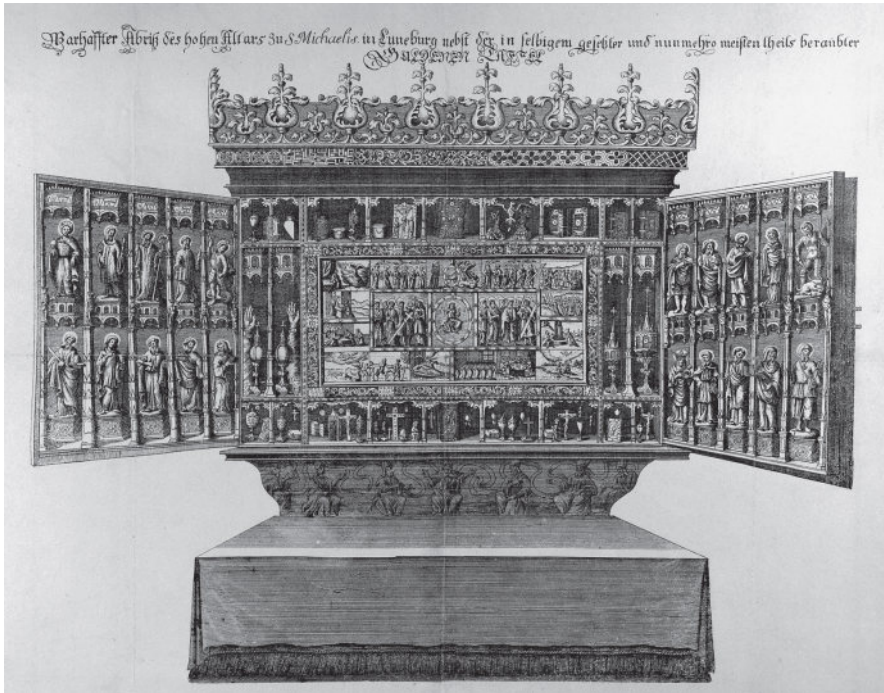 Warhaffter Abriß des hohen Altars zu S. Michaelis. in Luneburg nebst der in selbigem gesetzter und nunmehro meisten theils beraubter
GULDENEN TAFFEL